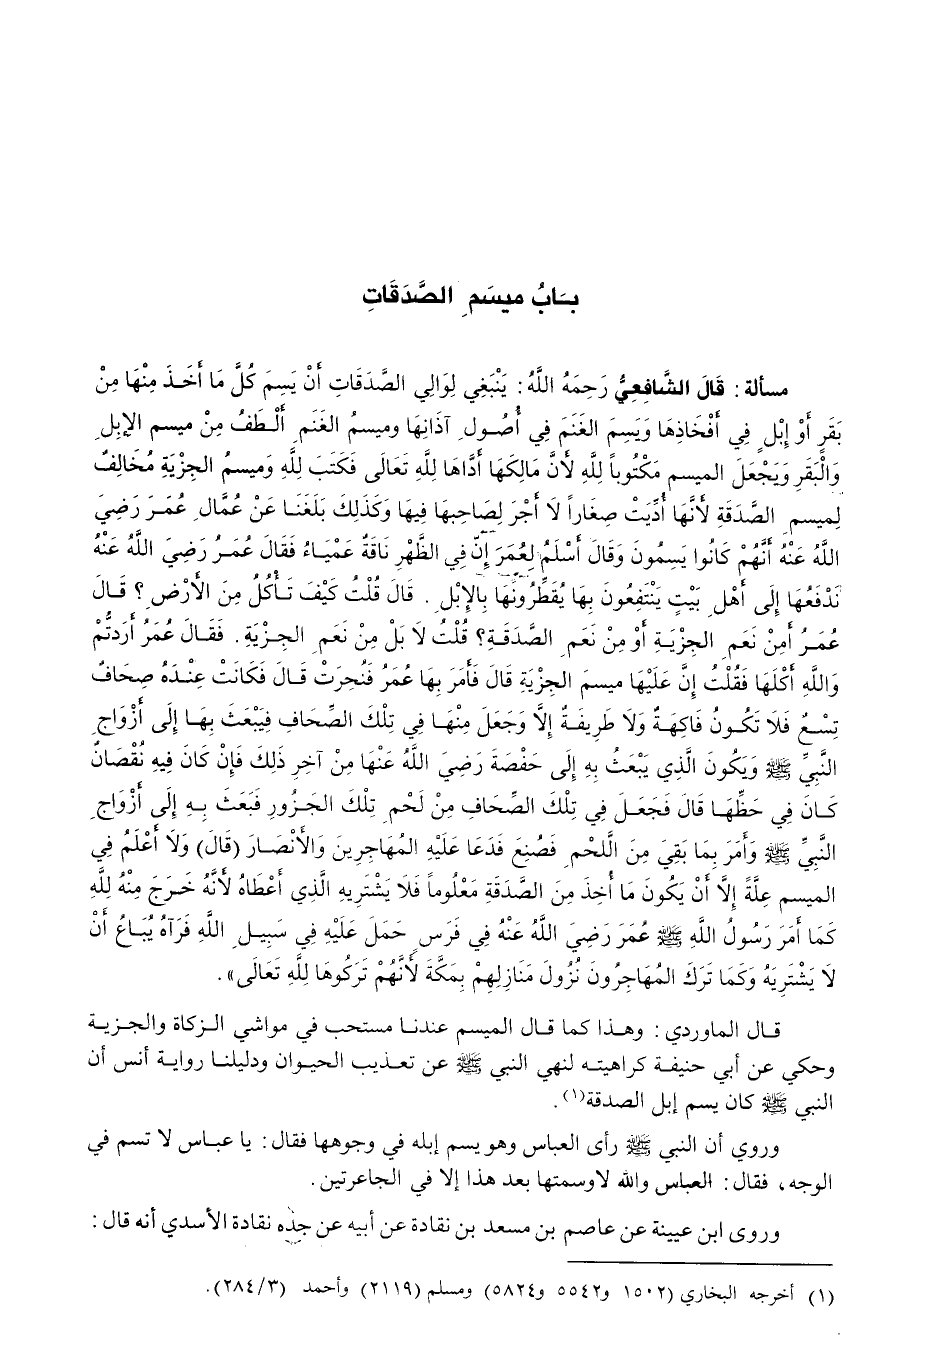 بَابُ مِيسَمِ الصَّدَقَاتِ
مسألة: قَالَ الشَّافِعِيُّ رَحِمَهُ اللَّهُ: يَنْبَغِي لِوَالِي الصَّدَقَاتِ أَنْ يَسِمَ كُلَّ مَا أَخَذَ مِنْهَا مِنْ
بَقَرٍ أَوْ إِبْلٍ فِي أَفْخَاذِهَا وَيَسِمَ الغَنَمَ فِي أُصُولِ آذَانِهَا وميسمُ الغَنَمِ أَلْطَفُ مِنْ ميسم الإِبِلِ
وَالْبَقَرِ وَيَجْعَلَ الميسم مَكْتُوباً لِلَّهِ لأَنَّ مَالِكَهَا أَدَّاهَا لِلَّهِ تَعَالَى فَكَتَبَ لِلَّهِ وَميسمُ الجِزْيَةِ مُخَالِفٌ
لِميسمِ الصَّدَقَةِ لأَنَّهَا أُدِّيَتْ صِغَاراً لَا أَجْرَ لِصَاحِبِهَا فِيهَا وَكَذَلِكَ بَلَغَنَا عَنْ عُمَّالِ عُمَرَ رَضِيَ
اللَّهُ عَنْهُ أَنَّهُمْ كَانُوا يَسِمُونَ وَقَالَ أَسْلَمُ لِعُمَرَ إِنَّ فِي الظَّهْرِ نَاقَةٌ عَمْيَاءُ فَقَالَ عُمَرُ رَضِيَ اللَّهُ عَنْهُ
نَدْفَعُهَا إِلَى أَهْلِ بَيْتٍ يَنْتَفِعُونَ بِهَا يُقَطِّرُونَهَا بِالإِبْلِ. قَالَ قُلْتُ كَيْفَ تَأْكُلُ مِنَ الأَرْضِ؟ قَالَ
عُمَرُ أَمِنْ نَعَمِ الجِزْيَةِ أَوْ مِنْ نَعَمِ الصَّدَقَةِ؟ قُلْتُ لَا بَلْ مِنْ نَعَمِ الجِزْيَةِ. فَقَالَ عُمَرُ أَرَدتُّمْ
وَاللَّهِ أَكْلَهَا فَقُلْتُ إِنَّ عَلَيْهَا ميسمَ الجِزْيَةِ قَالَ فَأَمَرَ بِهَا عُمَرُ فَنُحِرَتْ قَالَ فَكَانَتْ عِنْدَهُ صِحَافٌ
تِسْعٌ فَلَا تَكُونُ فَاكِهَةٌ وَلَا طَرِيفَةٌ إِلَّا وَجَعَلَ مِنْهَا فِي تِلْكَ الصِّحَافِ فَيَبْعَثُ بِهَا إِلَى أَزْوَاجِ
النَّبِيِّ ﷺ وَيَكُونُ الَّذِي يَبْعَثُ بِهِ إِلَى حَفْصَةَ رَضِيَ اللَّهُ عَنْهَا مِنْ آخِرِ ذَلِكَ فَإِنْ كَانَ فِيهِ نُقْصَانٌ
كَانَ فِي حَظِّهَا قَالَ فَجَعَلَ فِي تِلْكَ الصِّحَافِ مِنْ لَحْمِ تِلْكَ الجَزُورِ فَبَعَثَ بِهِ إِلَى أَزْوَاجِ
النَّبِيِّ ﷺ وَأَمَرَ بِمَا بَقِيَ مِنَ اللَّحْمِ فَصُنِعَ فَدَعَا عَلَيْهِ المُهَاجِرِينَ وَالأَنْصَارَ (قَالَ) وَلَا أَعْلَمُ فِي
الميسمِ عِلَّةً إِلَّا أَنْ يَكُونَ مَا أُخِذَ مِنَ الصَّدَقَةِ مَعْلُوماً فَلَا يَشْتَرِيهِ الَّذِي أَعْطَاهُ لأَنَّهُ خَرَجَ مِنْهُ لِلَّهِ
كَمَا أَمَرَ رَسُولُ اللَّهِ ﷺ عُمَرَ رَضِيَ اللَّهُ عَنْهُ فِي فَرَسٍ حَمَلَ عَلَيْهِ فِي سَبِيلِ اللَّهِ فَرَآهُ يُبَاعُ أَنْ
لَا يَشْتَرِيَهُ وَكَمَا تَرَكَ المُهَاجِرُونَ نُزُولَ مَنَازِلِهِمْ بِمَكَّةَ لأَنَّهُمْ تَرَكُوهَا لِلَّهِ تَعَالَى».
قال الماوردي: وهذا كما قال الميسم عندنا مستحب في مواشي الزكاة والجزية
وحكي عن أبي حنيفة كراهيته لنهي النبي ﷺ عن تعذيب الحيوان ودليلنا رواية أنس أن
النبي ﷺ كان يسم إبل الصدقة(١).
وروي أن النبي ﷺ رأى العباس وهو يسم إبله في وجوهها فقال: يا عباس لا تسم في
الوجه، فقال: العباس والله لاوسمتها بعد هذا إلا في الجاعرتين.
وروى ابن عيينة عن عاصم بن مسعد بن نقادة عن أبيه عن جده نقادة الأسدي أنه قال:
(١) أخرجه البخاري (١٥٠٢ و٥٥٤٢ و٥٨٢٤) ومسلم (٢١١٩) وأحمد (٣/٢٨٤).